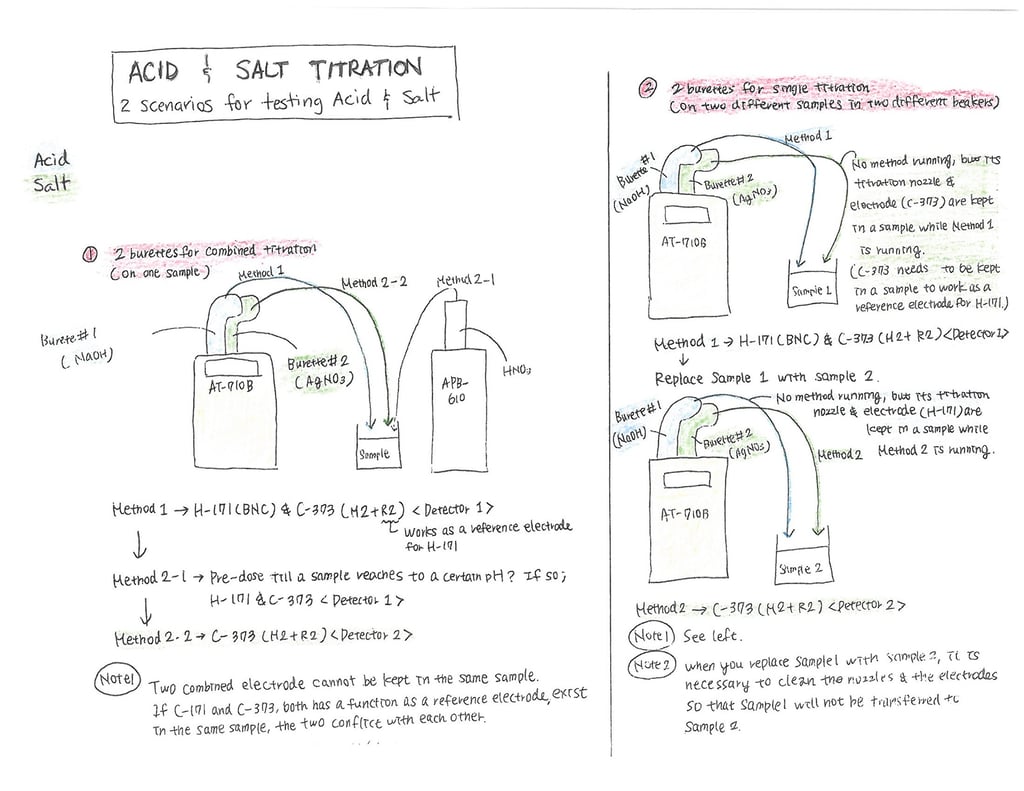 ACID & SALT TITRATION
2 scenarios for testing Acid & Salt
Acid
Salt
① 2 burettes for combined titration
(on one sample)
Method 1
Method 2-2
Method 2-1
Burete #1
(NaOH)
Burette #2
(AgNO3)
HNO3
AT-710B
APB-
610
Sample
Method 1 → H-171 (BNC) & C-373 (M2+R2) <Detector 1>
works as a reference electrode
for H-171
↓
Method 2-1 → Pre-dose till a sample reaches to a certain pH? If so;
H-171 & C-373 <Detector 1>
↓
Method 2-2 → C-373 (M2+R2) <Detector 2>
Note1
Two combined electrode cannot be kept in the same sample.
If C-171 and C-373, both has a function as a reference electrode, exist
in the same sample, the two conflict with each other.
② 2 burettes for single titration
(on two different samples in two different beakers)
Method 1
Burette #1
(NaOH)
Burette #2
(AgNO3)
AT-710B
Sample 1
No method running, but its
titration nozzle &
electrode (C-373) are kept
in a sample while Method 1
is running.
(C-373 needs to be kept
in a sample to work as a
reference electrode for H-171.)
Method 1 → H-171 (BNC) & C-373 (M2+R2) <Detector 1>
↓
Replace Sample 1 with sample 2.
No method running, but its titration
nozzle & electrode (H-171) are
kept in a sample while
Method 2 is running.
Burette #1
(NaOH)
Burette #2
(AgNO3)
Method 2
AT-710B
Sample 2
Method 2 → C-373 (M2+R2) <Detector 2>
Note1 See left.
Note 2 when you replace Sample1 with sample 2, it is
necessary to clean the nozzles & the electrodes
so that Sample1 will not be transferred to
Sample 2.